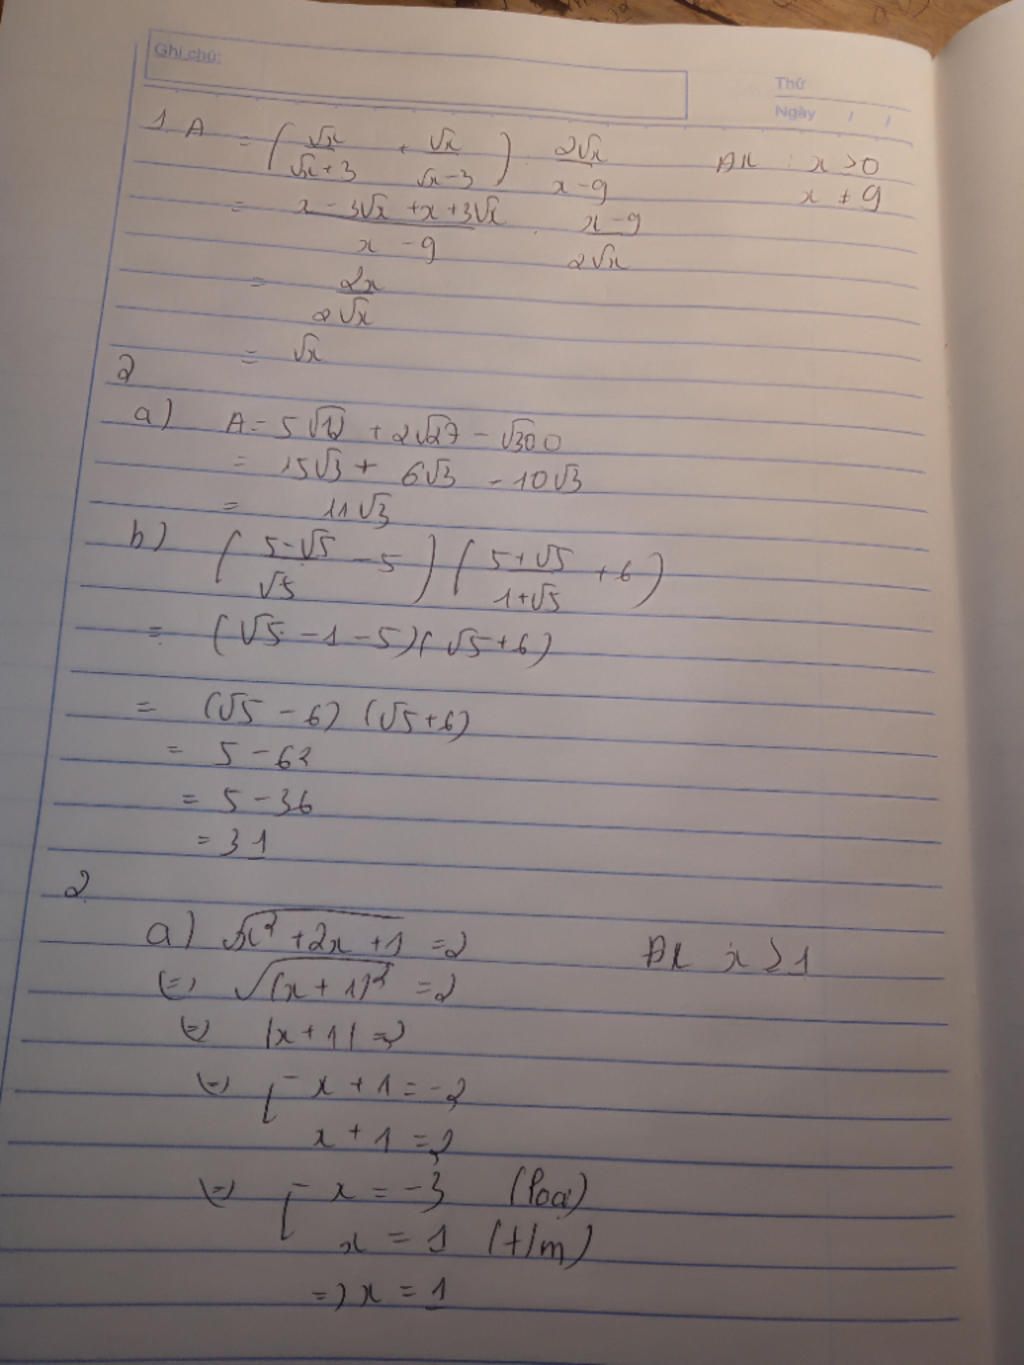 Ghi chú:
Thứ
Ngày / /
1 A = (√x/(√x+3) + √x/(√x-3)) : 2√x/(x-9) ĐK : x > 0
x ≠ 9
= (x - 3√x + x + 3√x)/(x - 9) . (x-9)/(2√x)
= 2x/(2√x)
= √x
2
a) A = 5√12 + 2√27 - √300
= 15√3 + 6√3 - 10√3
= 11√3
b) ((5-√5)/√5 - 5) ((5+√5)/(1+√5) + 6)
= (√5 - 1 - 5)(√5+6)
= (√5 - 6) (√5+6)
= 5 - 62
= 5 - 36
= 31
2
a) √(x² + 2x + 1) = 2 ĐK x ≥ 1
(=) √((x + 1)²) = 2
(=) |x + 1| = 2
(=) [ x + 1 = -2
x + 1 = 2
(=) [ x = -3 (loại)
x = 1 (t/m)
=) x = 1